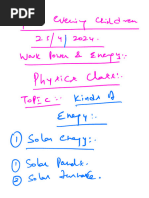 Good Evening Children
25/4/2024.
Work Power & Energy:.
Physics Class:.
Topic:. Kinds of
Energy:.
① Solar Energy:.
① Solar Panels:.
② Solar furnace.